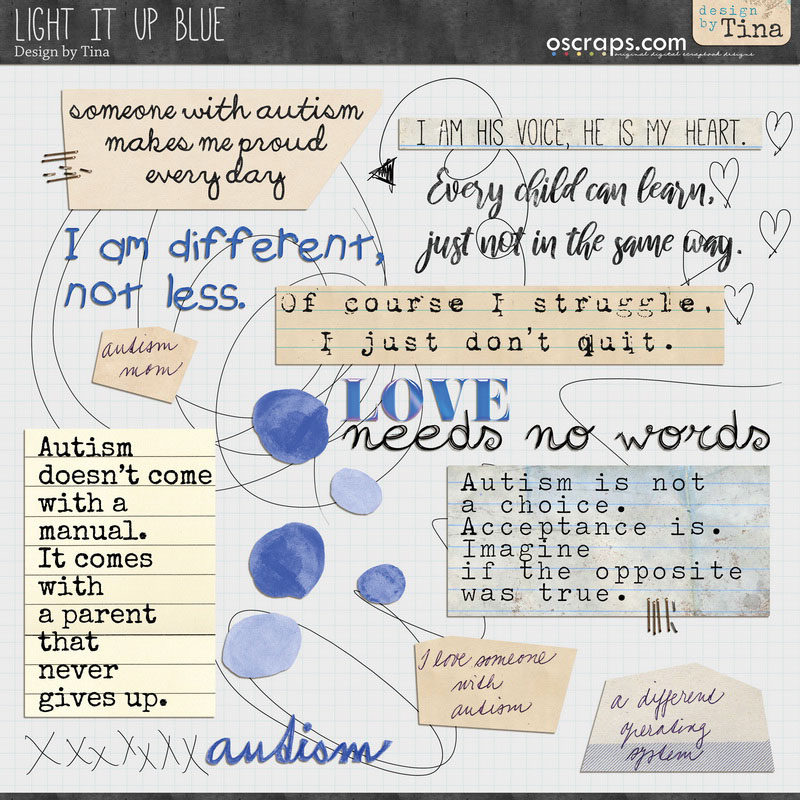 LIGHT IT UP BLUE
Design by Tina
oscraps.com
original digital scrapbook designs
design
by Tina
someone with autism
makes me proud
every day
I AM HIS VOICE, HE IS MY HEART.
Every child can learn,
just not in the same way.
I am different,
not less.
Of course I struggle.
I just don't quit.
autism
mom
LOVE
needs no words
Autism
doesn't come
with a
manual.
It comes
with
a parent
that
never
gives up.
Autism is not
a choice.
Acceptance is.
Imagine
if the opposite
was true.
I love someone
with
autism
a different
operating
system
XXXXXXX
autism